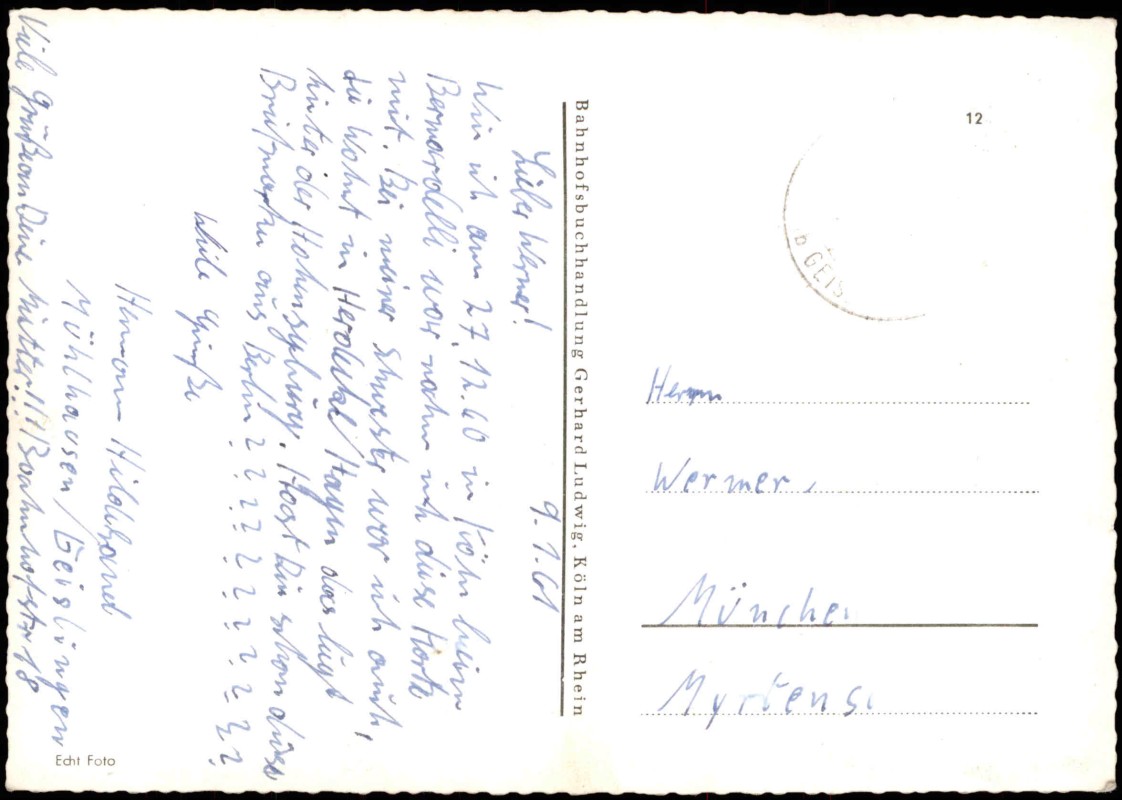 9.1.61
Lieber Werner!
Wie ich am 27.12.60 in Köln beim
Bernardelli war nahm ich diese Karte
mit. Bei meiner Schwester war ich auch,
die Wohnt in Herdecke/Hagen das liegt
hinter der Hohensyburg. Hast Du schon diese
Briefmarke aus Berlin ? ? ? ? ? ? ? ? ? ?
Viele Grüße
Hermann Hildebrand
Mühlhausen/Geislingen
Bahnhofstr 18
Viele Grüße an Deine Mutter!!!
Echt Foto
Bahnhofsbuchhandlung Gerhard Ludwig, Köln am Rhein
12
b GEIS
Herrn
Werner
München
Myrtens